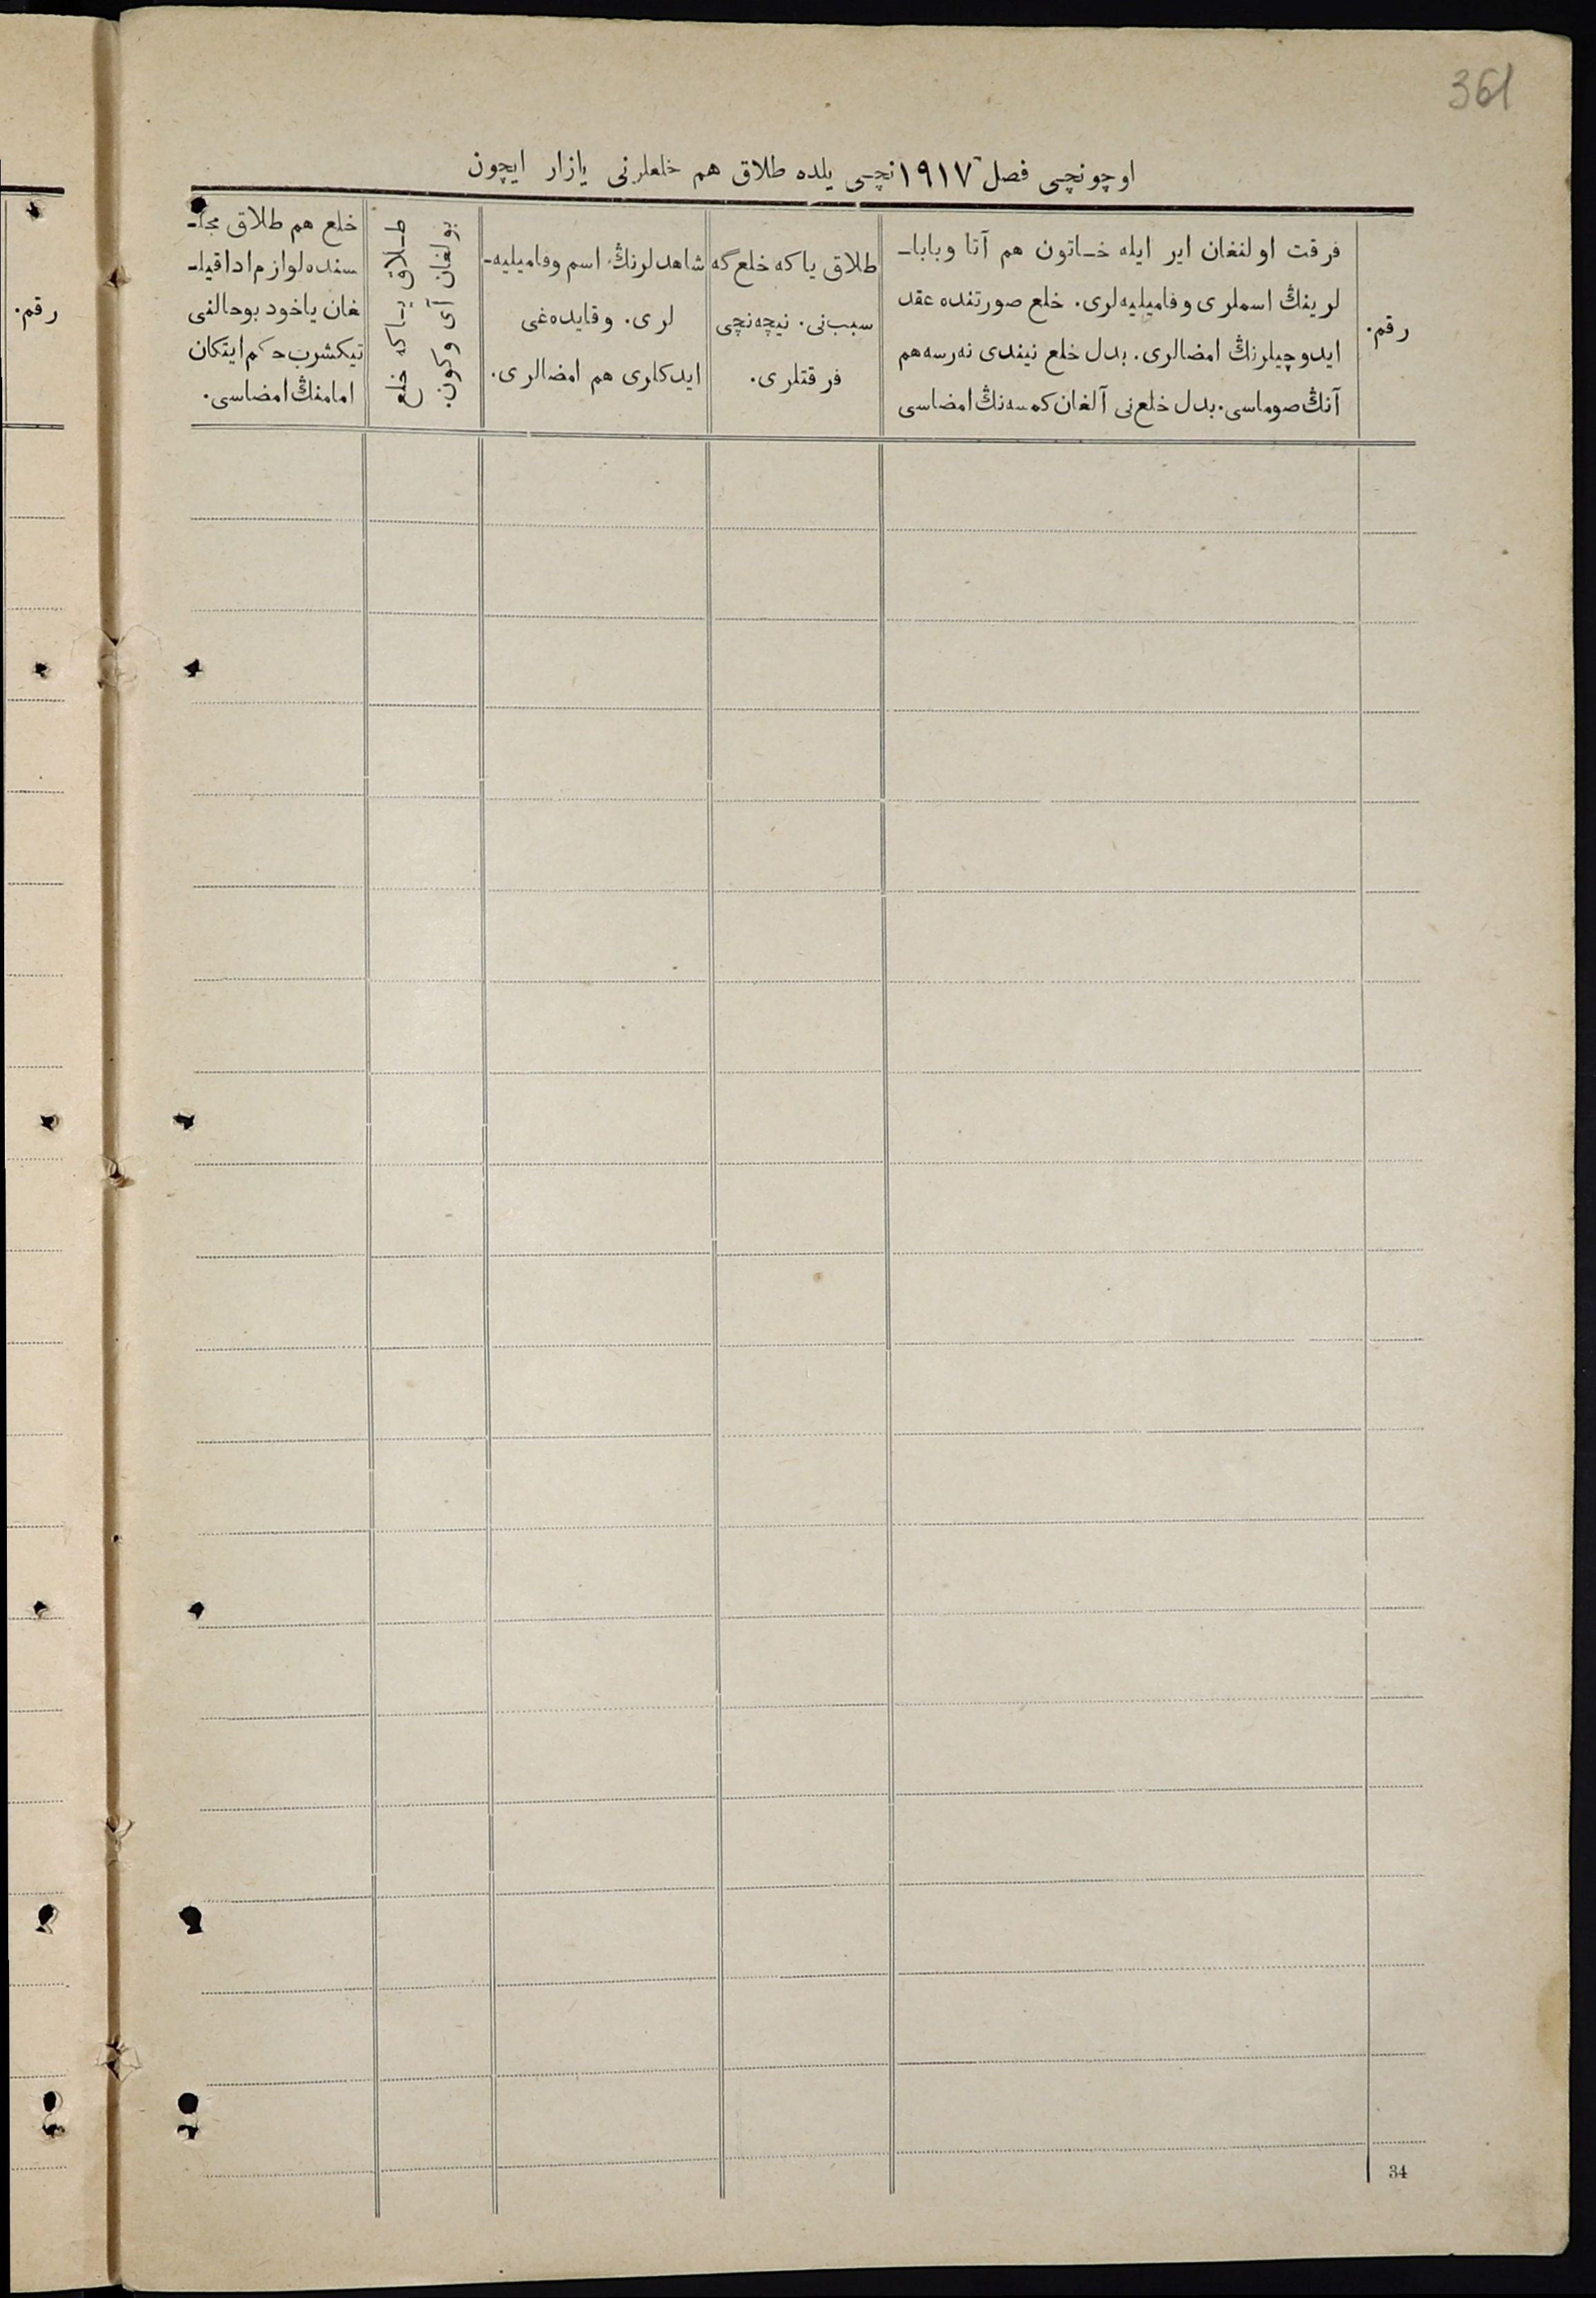 361
اوچونچی فصل ١٩١٧ نچی یلده طلاق هم خلعلرنی یازار ایچون
رقم.
فرقت اولنغان ایر ایله خـاتون هم آتا وبابا-
لرینڭ اسملری وفامیلیه‌لری. خلع صورتنده عقد
ایدوچیلرنڭ امضالری. بدل خلع نیندی نه‌رسه هم
آنڭ صوماسی. بدل خلع‌نی آلغان کمسه‌نڭ امضاسی
طلاق یاکه خلع گه
سبب‌نی. نیچه‌نچی
فرقتلری.
شاهدلرنڭ اسم وفامیلیه-
لری. وقایده‌غی
ایدکلری هم امضالری.
طـلاق یـاکه خلع
بولغان آی وکون.
خلع هم طلاق مجلـ
سنده لوازم ادا قیلـ
غان یاخود بوحالنی
تیکشرب حکم ایتکان
امامنڭ امضاسی.
رقم.
34